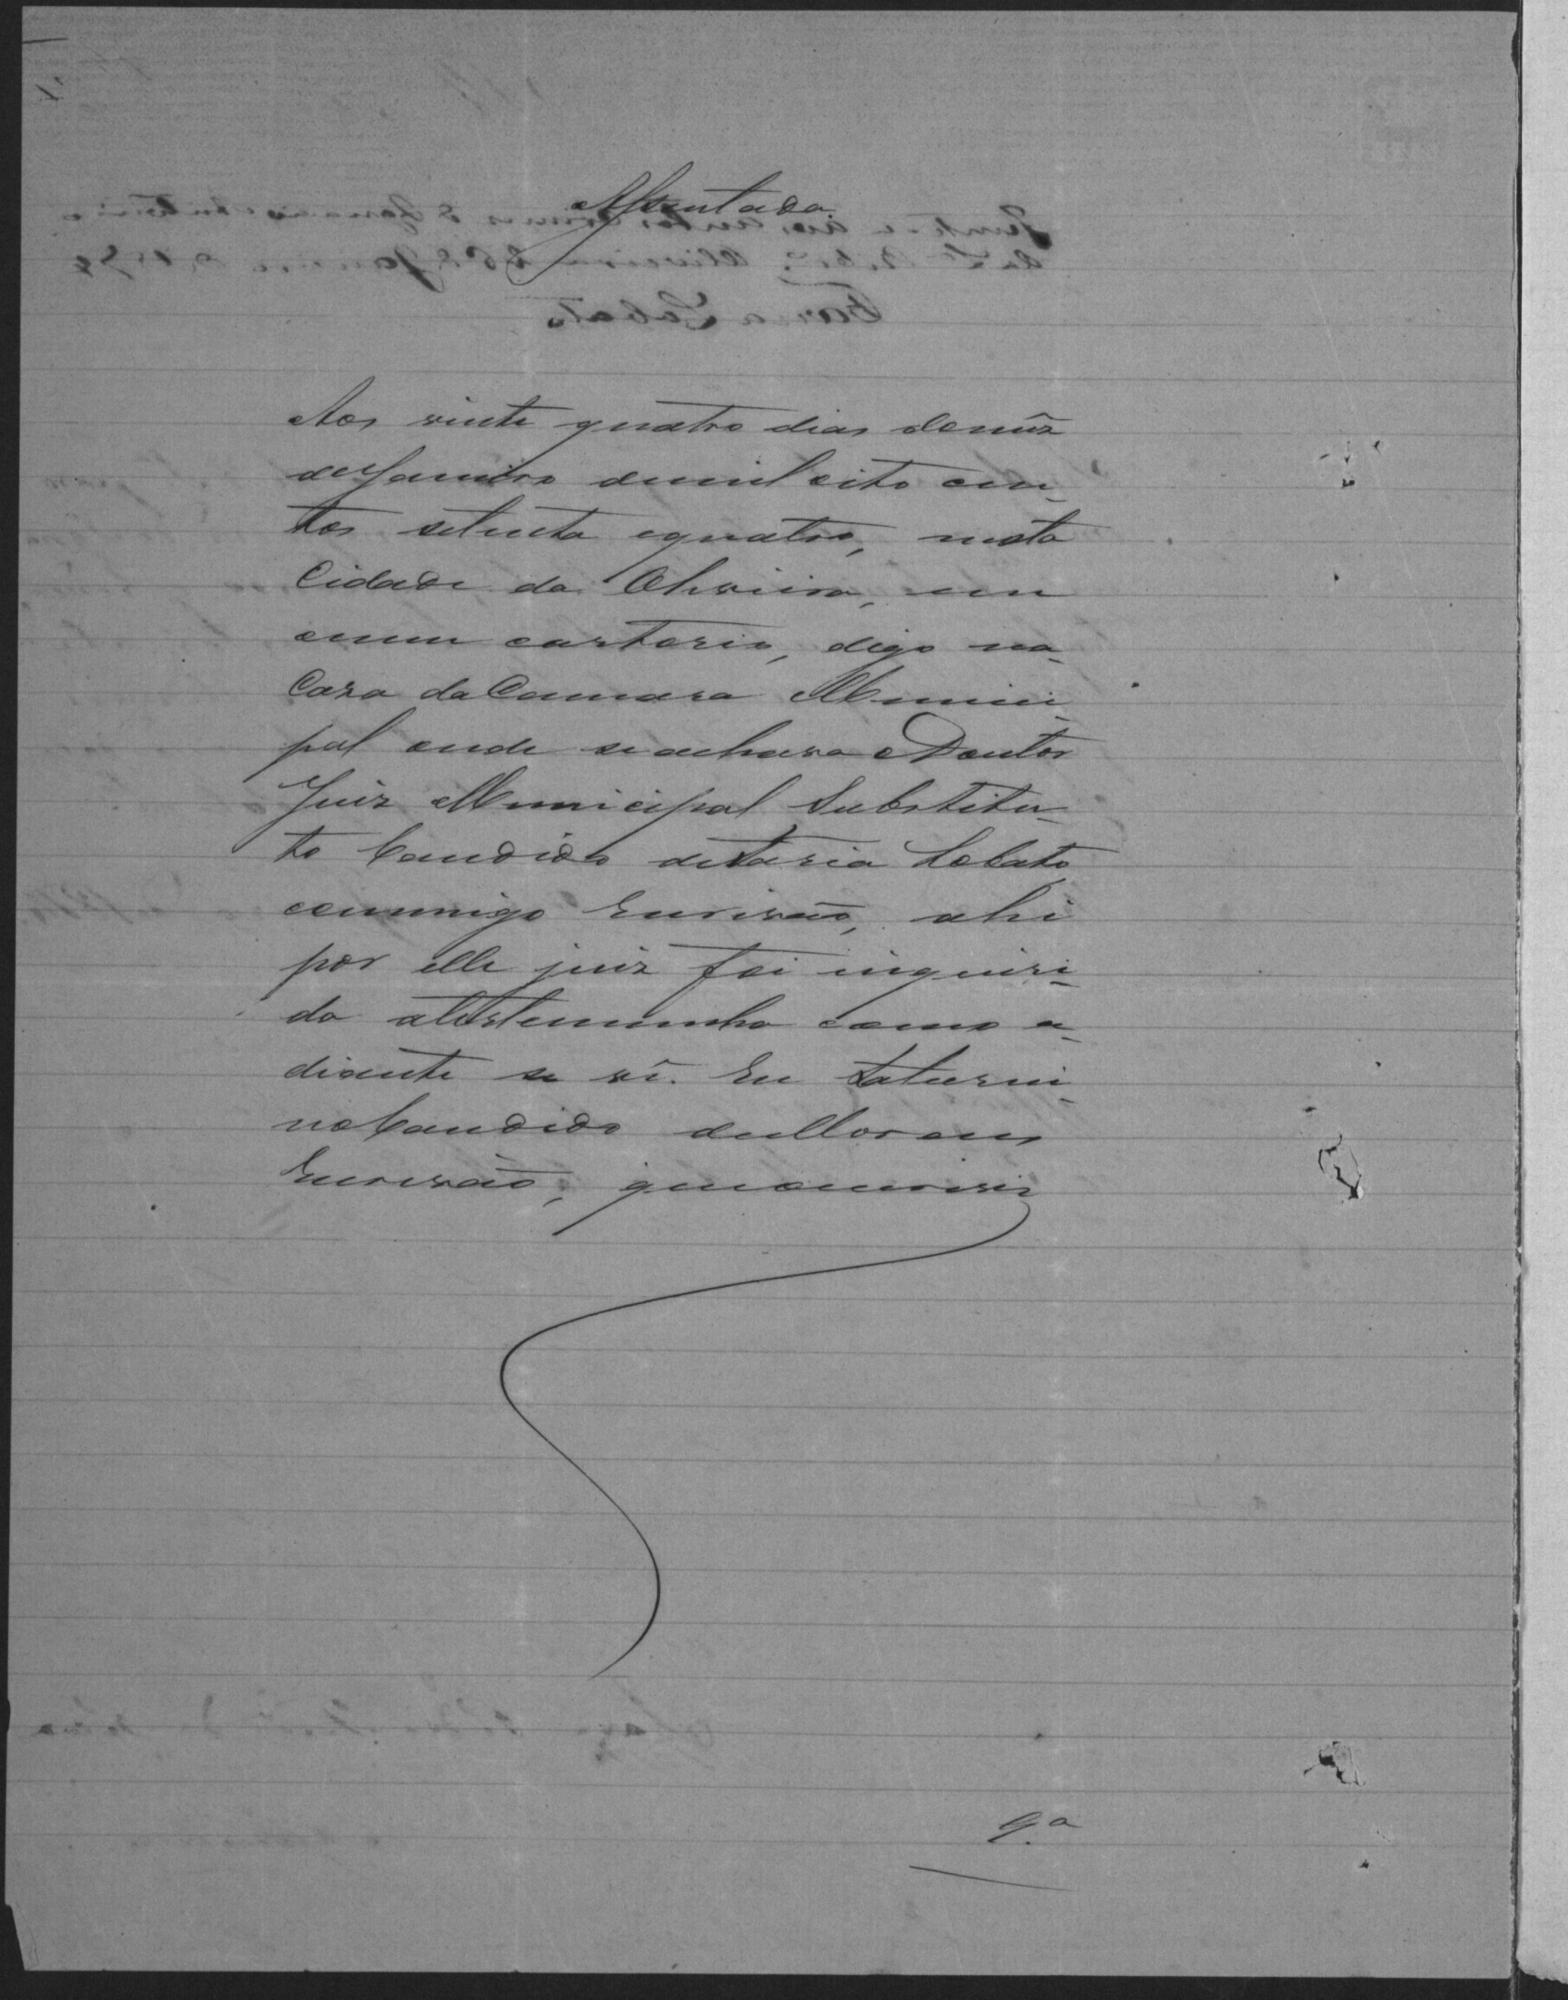 Assentada
Aos vinte quatro dias do mez
de Janeiro de mil oito cen-
tos setenta e quatro, nesta
Cidade da Oliveira, em
o meu cartorio, digo na
Casa da Camara Munici-
pal onde se achava o Doutor
Juiz Municipal Substitu-
to Candido de Faria Lobato,
commigo Escrivão, ahi
por elle juiz foi inquiri-
da a testemunha como a-
diante se vê. Eu Saturni-
no Candido de
Escrivão, que o escrevi